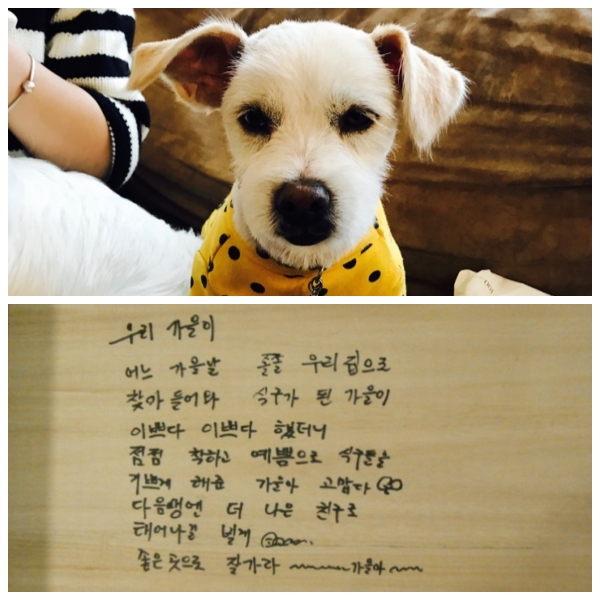 우리 가을이
어느 가을날 졸졸 우리집으로
찾아 들어와 식구가 된 가을이
이쁘다 이쁘다 했더니
점점 착하고 예쁨으로 식구들을
기쁘게 해준 가을아 고맙다
다음생엔 더 나은 친구로
태어나길 빌게
좋은 곳으로 잘가라 가을아